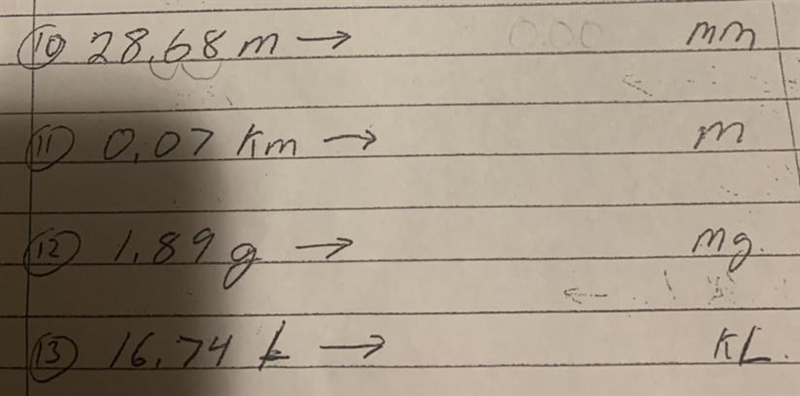 10 28.68 m → mm
11 0.07 Km → m
12 1.89 g → mg.
13 16.74 L → KL.